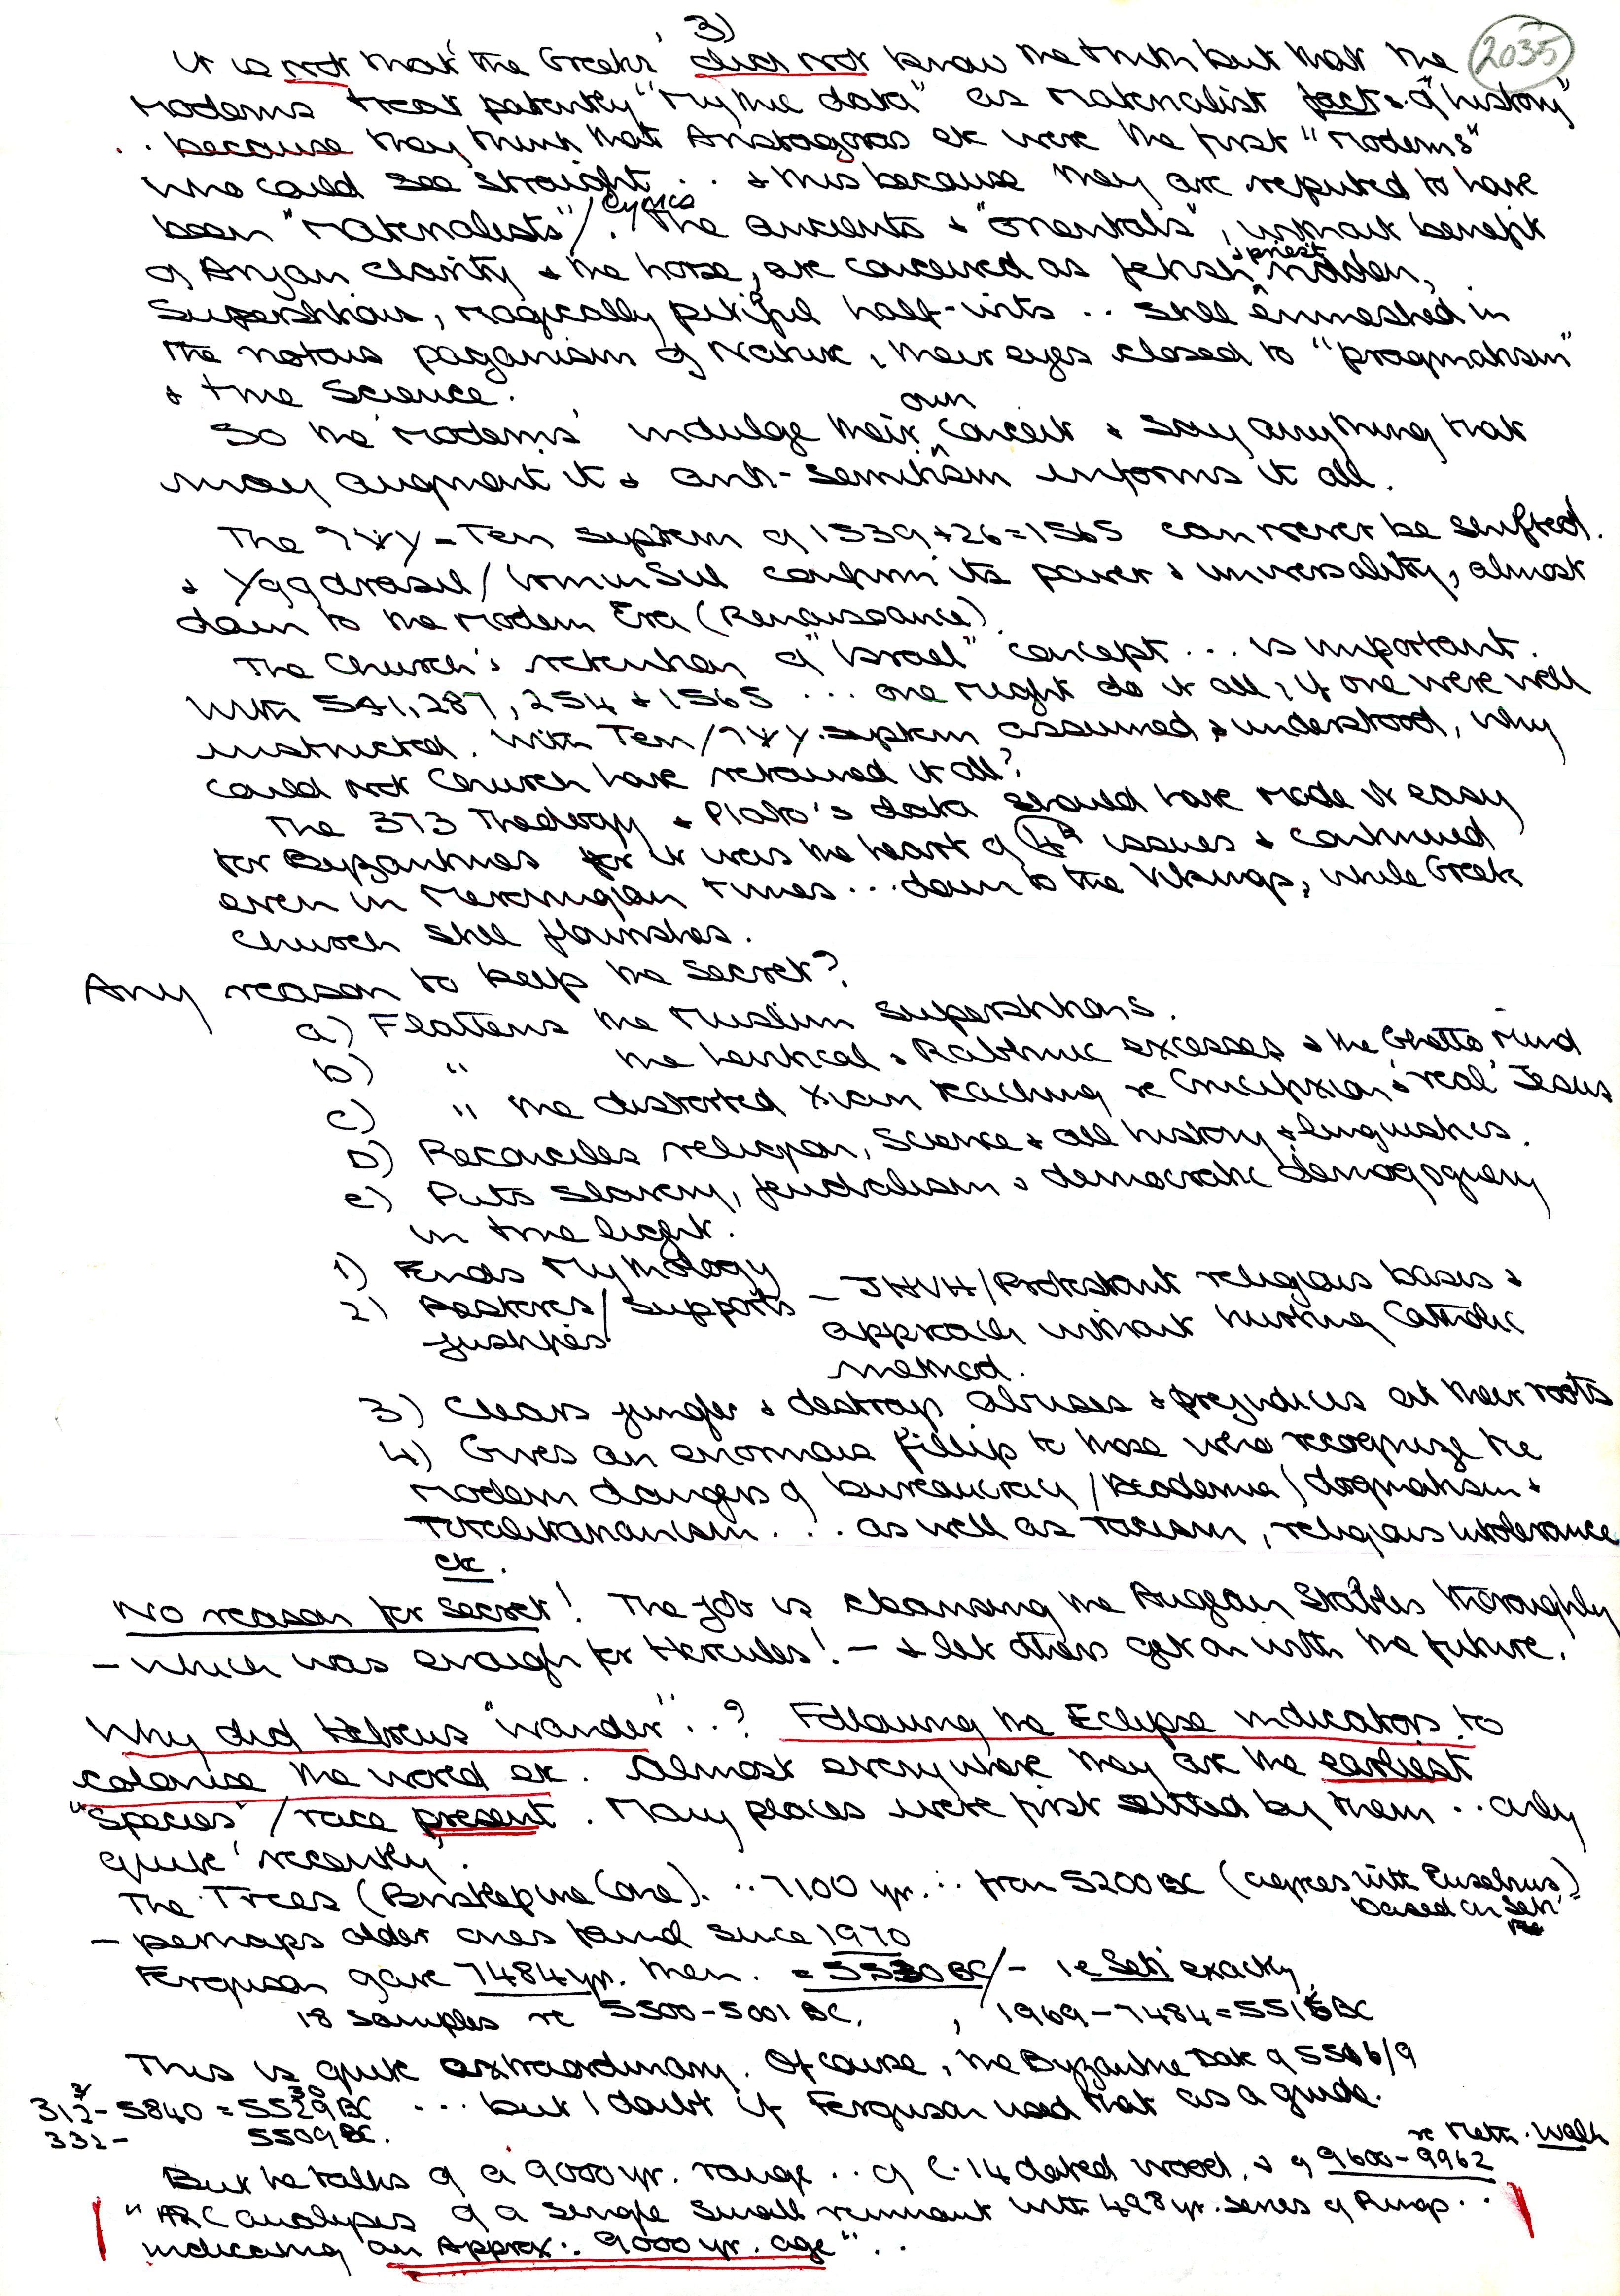 3)
2035
It is not that 'the Greeks' did not know the truth but that the
Moderns treat patently "Mythic data" as Materialist facts of "history"
.. because they think that Anaxagoras etc were the first "Moderns"
who could see straight .. & this because they are reputed to have
been "Materialists"/Cynics. The ancients & "orientals", without benefit
of Aryan clarity & the horse, are conceived as fetish & priest ridden,
Superstitious, magically pitiful half-wits .. still enmeshed in
the notous paganism of Nature, their eyes closed to "pragmatism"
& true Science.
So the 'Moderns' indulge their own conceit & say anything that
may augment it & anti-semitism informs it all.
The - Ten System of 1539+26=1565 can never be shifted.
& Yggdrasil/IrminSul confirm its power & universality, almost
down to the Modern Era (Renaissance).
The Church's retention of "Israel" concept ... is important.
With 541, 287, 254 & 1565 ... one might do it all, if one were well
instructed. With Ten/ system assumed & understood, why
could not Church have retained it all?
The 373 Theology & Plato's data should have made it easy
for Byzantines for it was the heart of issues & continued
even in Merovingian times ... down to the Vikings, while Greek
Church still flourishes.
Any reason to keep the Secret?
a) Flattens the Muslim superstitions.
b) " the & Rabbinic excesses & the Ghetto Mind
c) " the distorted Xian teaching re Crucifixion & 'real' Jesus
D) Reconciles religion, Science & all history & linguistics.
e) Puts Slavery, feudalism & democratic demagoguery
in true light.
1) Ends Mythology
2) Restores/Supports justifies – JHVH/Protestant religious basis &
approach without hurting Catholic
method.
3) Clears jungle & destroys abuses & prejudices at their roots
4) Gives an enormous fillip to those who recognize the
modern dangers of bureaucracy/Academia/dogmatism &
Totalitarianism ... as well as racism, religious intolerance
etc.
No reason for Secret! The job is cleansing the Augean Stables thoroughly
– which was enough for Hercules! – & let others get on with the future.
Why did Hebrews "wander" ..? Following the Eclipse indicators to
colonise the world etc. Almost everywhere they are the earliest
"Species"/race present. Many places were first settled by them .. only
quite 'recently'.
The Trees (Bristlepine Cone). .. 7100 yr. ∴ from 5200 BC (agrees with Eusebius)
based on Seti
– perhaps older ones found since 1970
Ferguson gave 7484 yr. then. = 5530 BC/ – ie Seti exactly
18 samples re 5500-5001 BC. , 1969-7484=5515 BC
This is quite extraordinary. Of course, the Byzantine Date of 5506/9
312-5840 = 5529 BC ... but I doubt if Ferguson used that as a guide.
332- 5509 BC.
But he talks of a 9000 yr. range .. of C.14 dated wood, & of 9600-9962
re Meth. Walk
"ARC analyses of a single small remnant with 498 yr. series of Rings ..
indicating an Approx. 9000 yr. age" ..